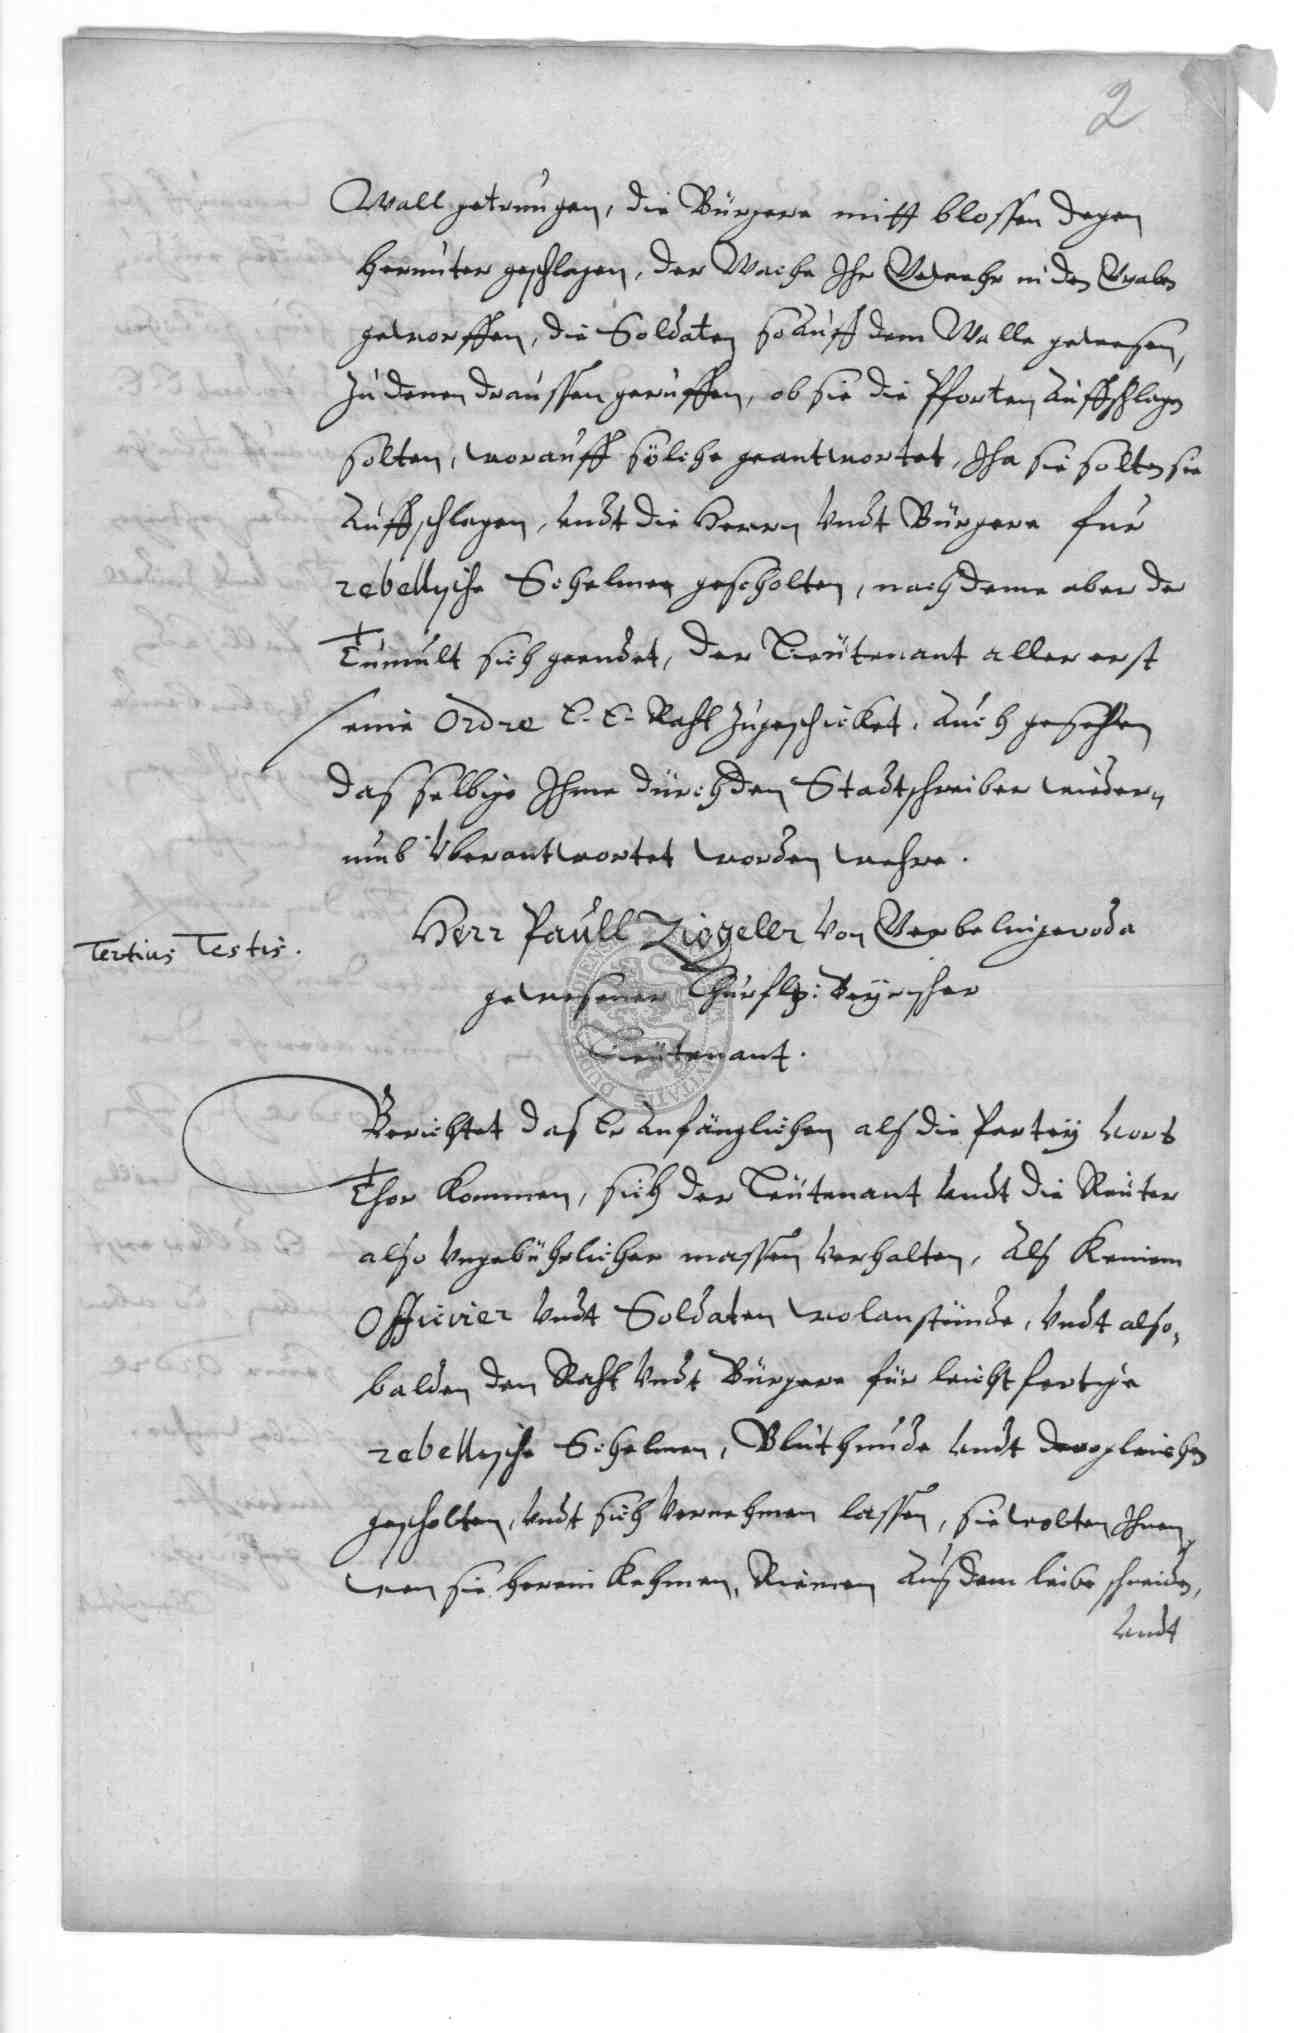 2
Wall getrungen, die Bürgere mitt blossen degen
herunter geschlagen, der Wache Ihr Gewehr in den Graben
geworffen, die Soldaten so Auff dem Walle gewesen,
zu denen draussen geruffen, ob sie die Pforten Auffschlagen
solten, worauff solche geantwortet, Jha sie solten sie
Auffschlagen, Undt die Herrn Undt Bürgere für
rebellische Schelmen gescholten, nach deme aber der
Tumult sich geendet, der Leutenant aller erst
seine Ordre E. E. Raht zugeschicket, Auch gesehen
das selbige Ihme durch den Stadtschreiber wieder,,
umb Uberantwortet worden wehre.
Tertius Testis.
Herr Paull Ziegeler Von Gerbelingeroda
gewesener Churfl: Beyrischer
Leutenant.
Berichtet das Er Anfänglichen als die Partey Vors
Thor kommen, sich der Leutenant Undt die Reuter
also Ungebührlicher massen Verhalten, Als keinem
Officier Undt Soldaten wolanstünde, Undt also,,
balden den Raht Undt Bürgere für leichtfertige
rebellische Schelmen, Bluthunde Undt derogleichen
gescholten, Undt sich Vernehmen lassen, sie wolten Ihnen
wen sie herein kehmen, Riemen Aus dem leibe schneiden,
Undt